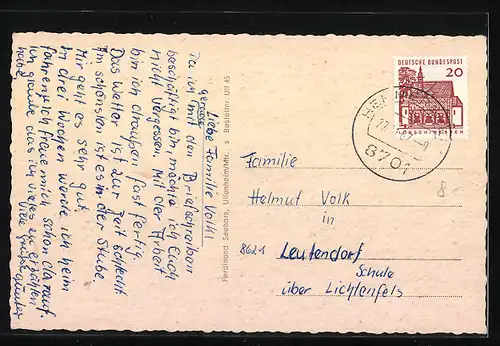 Liebe Familie Volk!
Da ich mit den Briefschreiben
gerade
beschäftigt bin, möchte ich Euch
nicht vergessen. Mit der Arbeit
bin ich draußen fast fertig.
Das Wetter ist zur Zeit schlecht
Am schönsten ist es in der Stube.
Mir geht es sehr gut.
In drei Wochen werde ich heim
fahren. Ich freue mich schon darauf
ich glaube das ich vieles zu erzählen
habe. Viele Grüße
Ferdinand Seehars, Bestellnr. Uff 45
DEUTSCHE BUNDESPOST
20
LORSCH/HESSEN
8701
Familie
Helmut Volk
in
8621 Leutendorf
Schule
über Lichtenfels
8-